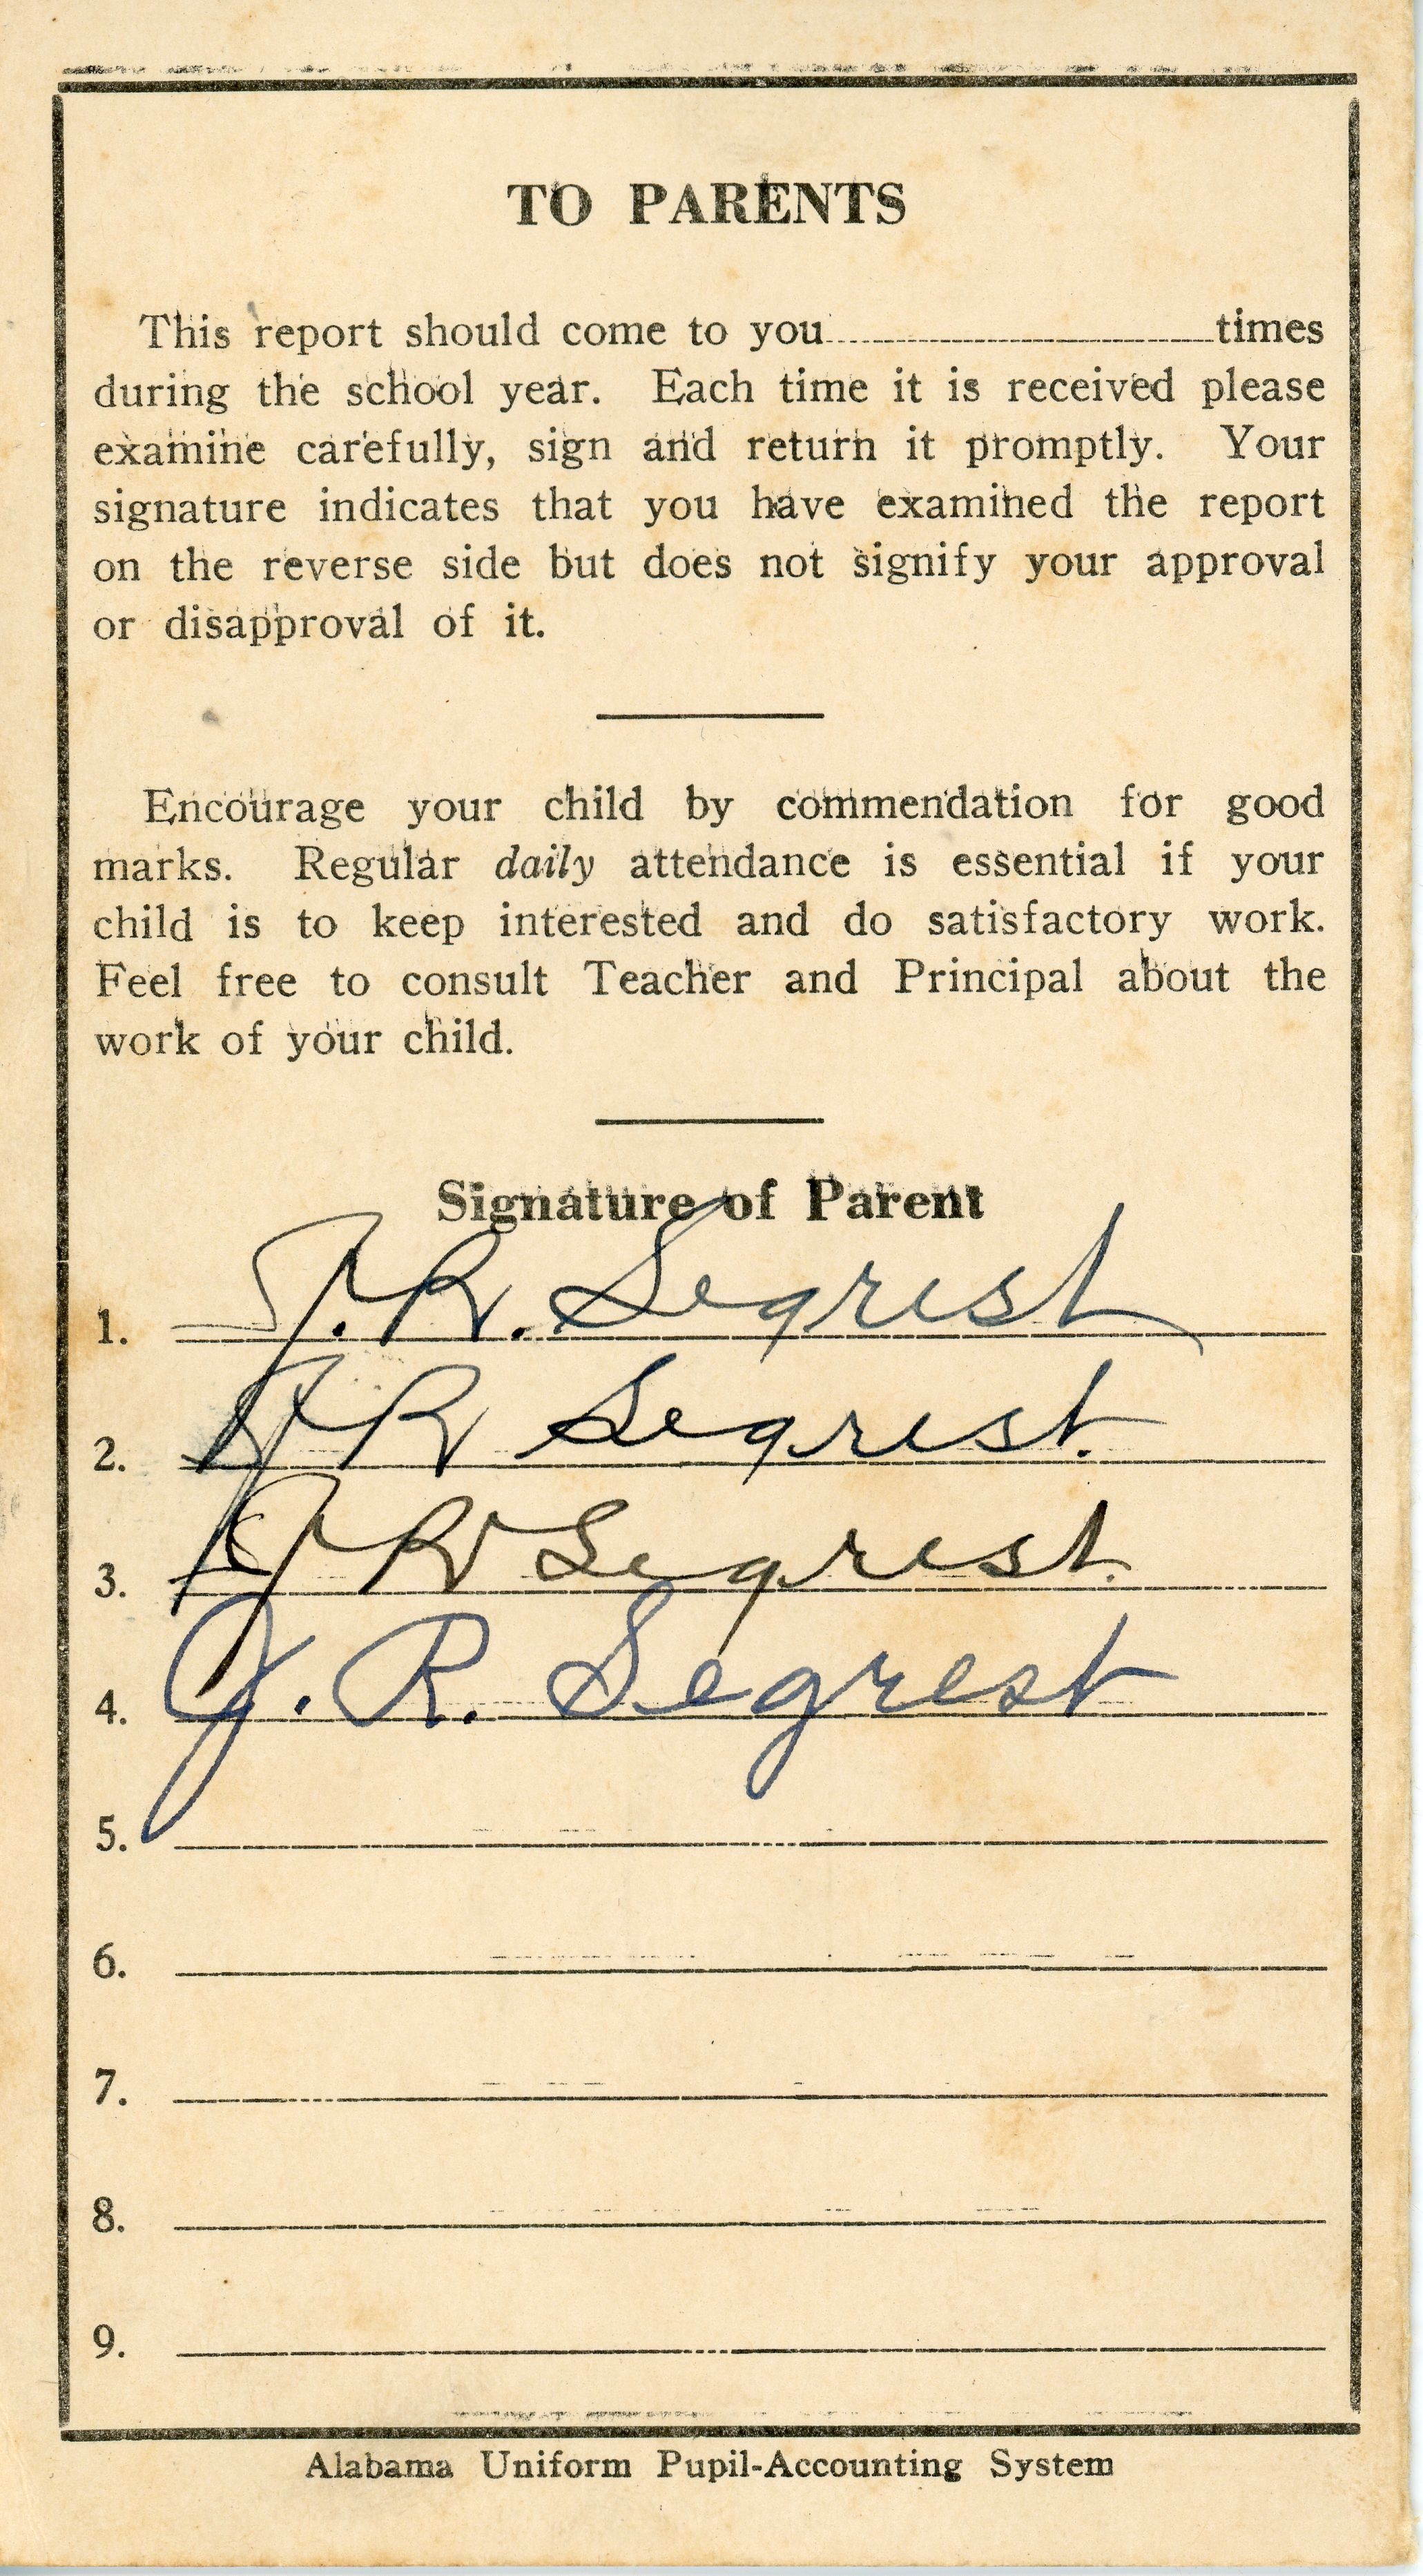 TO PARENTS
This report should come to you........................times
during the school year. Each time it is received please
examine carefully, sign and return it promptly. Your
signature indicates that you have examined the report
on the reverse side but does not signify your approval
or disapproval of it.
Encourage your child by commendation for good
marks. Regular daily attendance is essential if your
child is to keep interested and do satisfactory work.
Feel free to consult Teacher and Principal about the
work of your child.
Signature of Parent
1. J. R. Segrest
2. J R Segrest.
3. J R Segrest.
4. J. R. Segrest
5.
6.
7.
8.
9.
Alabama Uniform Pupil-Accounting System